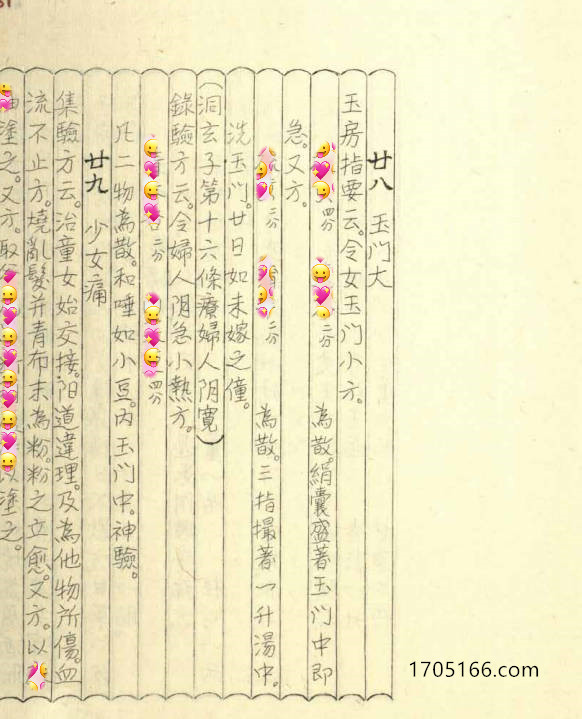 廿八 玉門大
玉房指要云。令女玉門小方。
四分 二分 為散。絹囊盛著玉門中即
急。又方。
二分 二分 為散。三指撮著一升湯中。
洗玉門。廿日如未嫁之僮。
(洞玄子第十六條療婦人阴寬)
錄驗方云。令婦人阴急小熱方。
二分 四分
凡二物為散。和唾如小豆。内玉门中。神驗。
廿九 少女痛
集驗方云。治童女始交接。阳道違理。及為他物所傷。血
流不止方。燒亂髮并青布末為粉。粉之立愈。又方。以
塗之。又方。取 以塗之。
1705166.com